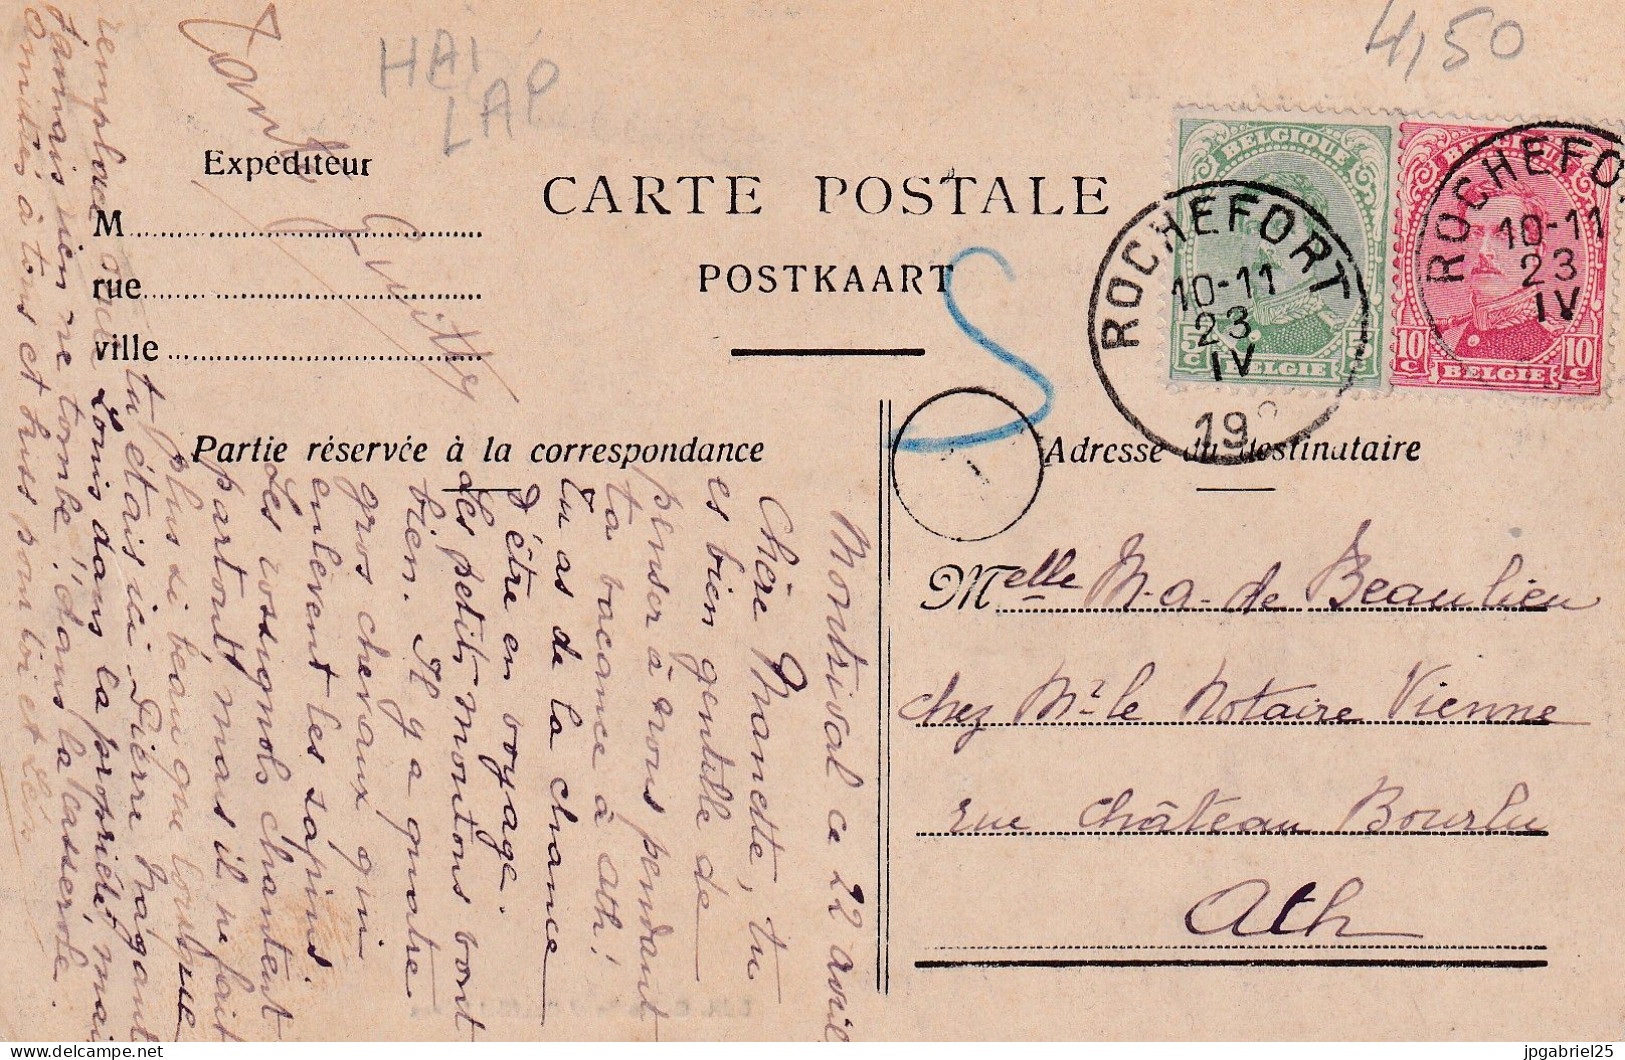 HAI
LAP
4,50
Expéditeur
M
rue
ville
CARTE POSTALE
POSTKAART
BELGIQUE
5 c 5 c
BELGIE
BELGIQUE
10 c 10 c
BELGIE
ROCHEFORT
10-11
23
IV
19
ROCHEFO
10-11
23
IV
Partie réservée à la correspondance
Adresse du destinataire
Melle M-a- de Beaulieu
chez Mr le Notaire Vienne
rue Château Bourlu
Ath
Montrival ce 22 avril
Chère Manette, tu
es bien gentille de
penser à nous pendant
ta vacance à Ath!
tu as de la chance
d'être en voyage.
Les petits moutons vont
bien. Il y a quatre
gros chevaux qui
enlèvent les sapins.
Les rossignols chantent
partout mais il ne fait
plus si beau que lorsque
tu étais ici. Pierre Magant
remplace Louis dans la propriété, mais
jamais rien ne tombe! dans la casserole.
Amitiés à tous et bises pour toi et Lén
jpgabriel25
delcampe.net